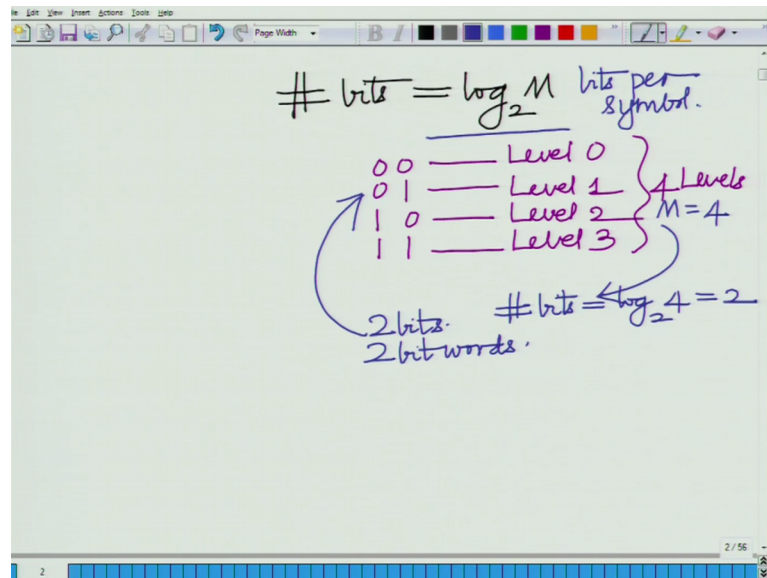 le Edit View Insert Actions Tools Help
Page Width
B I
# bits = log₂ M bits per symbol.
0 0 — Level 0
0 1 — Level 1
1 0 — Level 2
1 1 — Level 3
4 Levels
M = 4
# bits = log₂ 4 = 2
2 bits.
2 bit words.
2 / 56
2